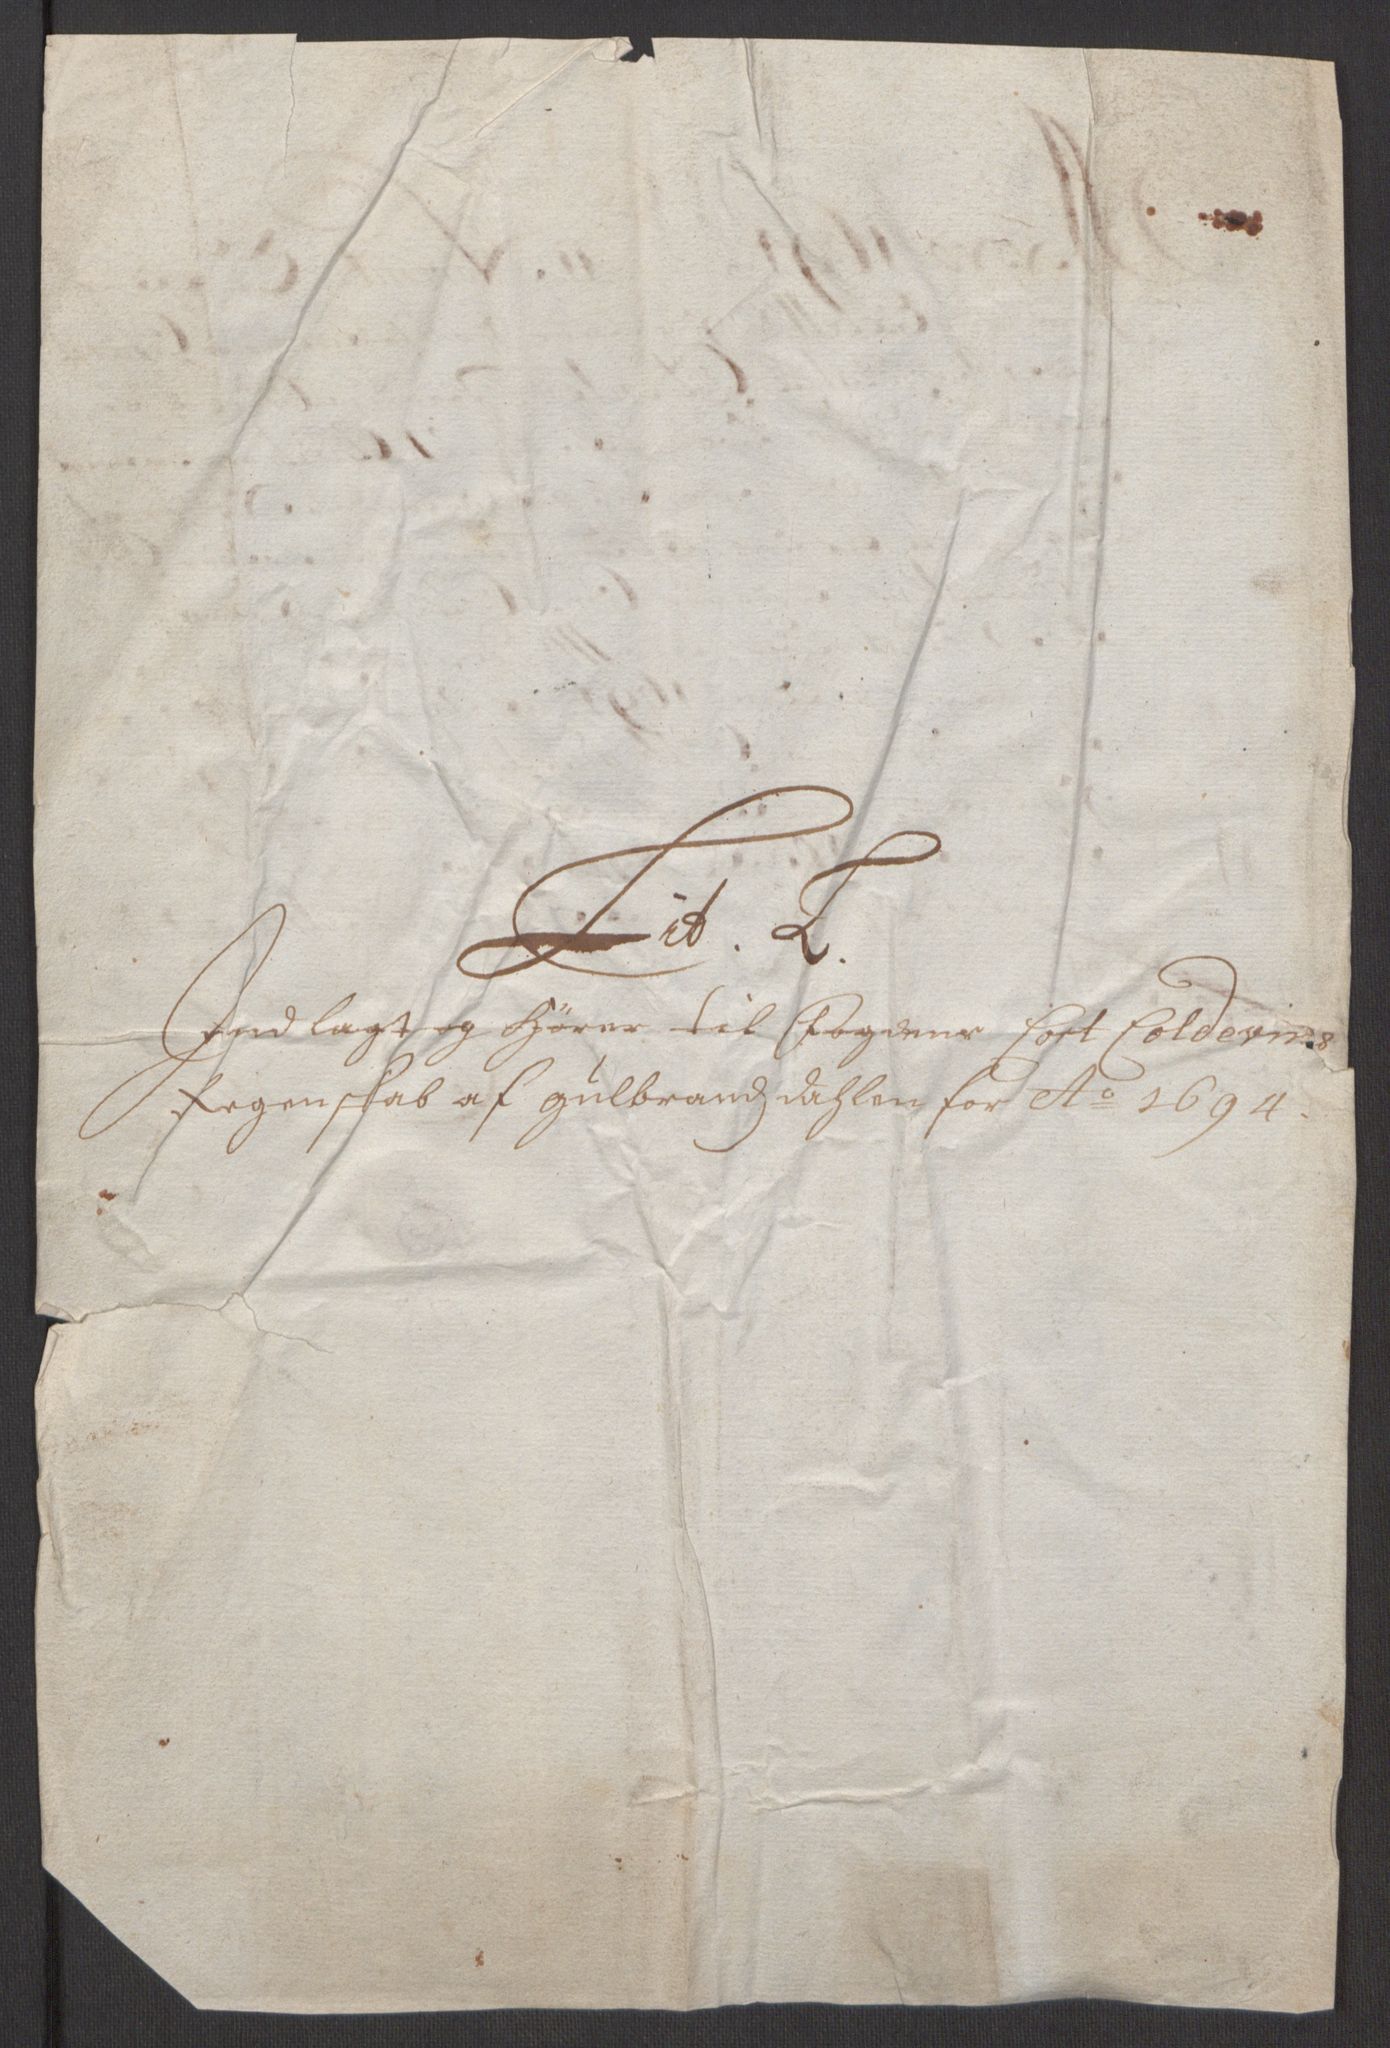 Lit. L.
Indlagt og hører til Fogdens Cort Coldevins
Regenskab af Gulbrandzdahlen for Ao 1694.